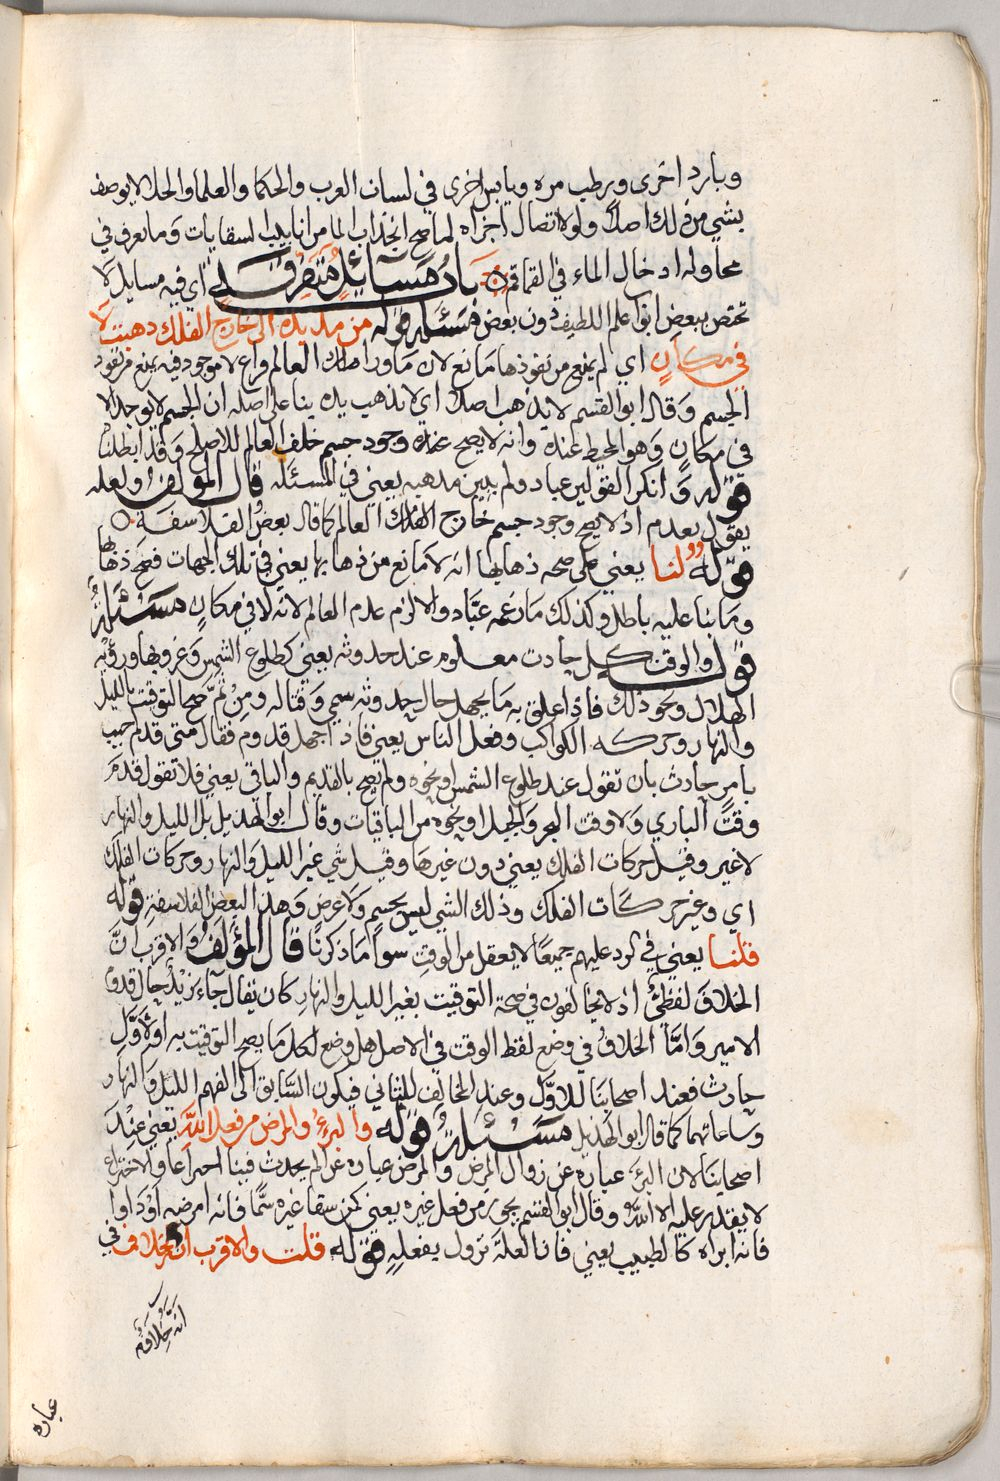 وبارد اخرى ورطب مره ويابس اخرى في لسان العرب والحكما والعلما والحد لا يوصف
بشي من ذلك اصلا ولولا اتصال اجزاه لما صح انجذاب الما من انابيب السقايات وما يعرف في
محاوله ادخال الماء في القماقم باب مسائل متفرقه اي فيه مسايل لا
تختص ببعض ابواب علم اللطيف دون بعض مسئله قوله من مد يده الى خارج الفلك ذهبت لا
في مكان اي لم يمنع من نفوذها مانع لان ما ورا فلك العالم فراغ لا موجود فيه يمنع من نفوذ
الجسم وقال ابو القسم لا يذهب اصلا اي لا تذهب يده بنا على اصله ان الجسم لا يوجد الا
في مكان وهو المحيط عنده وانه لا يصح عنده وجود جسم خلف العالم للاصلح وقد ابطلنا
قوله وانكر القولين عباد ولم يبين مذهبه يعني في المسئله قال المؤلف ولعله
يقول بعدم اذ لا يصح وجود جسم خارج الفلك العالم كما قال بعض الفلاسفة
قوله لنا يعني على صحه ذهابها انه لا مانع من ذهابها يعني في تلك الجهات فصح ذهابها
وما بنا عليه باطل وكذلك ما زعمه عباد والا لزم عدم العالم لانه لا في مكان مسئله
قوله والوقت كل حادث معلوم عند حدوثه يعني كطلوع الشمس وغروبها ورؤيه
الهلال ونحو ذلك فاذا علق به ما يجهل حال حدوثه سمي وقتا له ومن ثم صح التوقيت بالليل
والنهار وحركه الكواكب وفعل الناس يعني فاذا جهل قدوم فقال متى قدم اجيب
بامر حادث بان تقول عند طلوع الشمس او نحوه ولم يصح بالقديم والباقي يعني فلا تقول قدم
وقت الباري ولا وقت البحر والجبل او نحوه من الباقيات وقال ابو الهذيل بل الليل والنهار
لا غير وقيل حركات الفلك يعني دون غيرها وقيل شي غير الليل والنهار وحركات الفلك
اي وغير حركات الفلك وذلك الشي ليس بجسم ولا عرض وهذا لبعض الفلاسفة قوله
قلنا يعني في الرد عليهم جميعا لا يعقل من الوقت سوا ما ذكرنا قال المؤلف والاقرب ان
الخلاف لفظي اذ لا يخالفون في صحة التوقيت بغير الليل والنهار كان يقال جاء زيد حال قدوم
الامير واما الخلاف في وضع لفظ الوقت في الاصل هل وضع لكل ما يصح التوقيت به او لاول
حادث فعند اصحابنا للاول وعند المخالف للثاني فيكون السابق الى الفهم الليل والنهار
وساعاتهما كما قال ابو الهذيل مسئله قوله والبرء والمرض من فعل الله يعني عند
اصحابنا لان البرء عباره عن زوال المرض والمرض عباره عن الم يحدث فينا اختراعا والاختراع
لا يقدر عليه الا الله وقال ابو القسم يجوز من فعل غيره يعني كمن سقا غيره سما فانه امرضه او داوا
فانه ابراه كالطبيب يعني فان العلة تزول بفعله قوله قلت والاقرب ان الخلاف في
انه خلافه
عباره